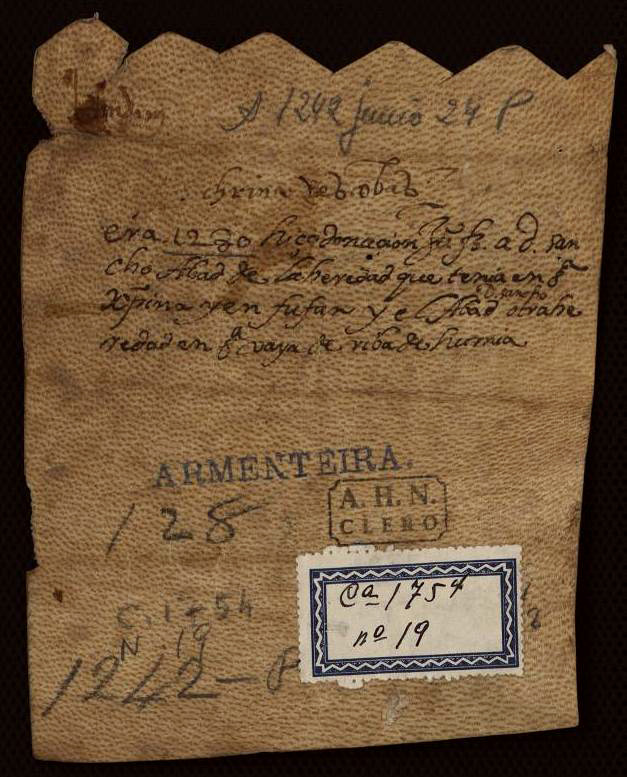 A 1242 junio 24 P
chrina escobas
era 1280 hico donacion Ju fz. a d. san
cho Abad de la heredad que tenia en sª
Xpina y en fufan y el Abad d. sancho otra he
redad en sª vaya de riba de humia
ARMENTEIRA.
128
A. H. N.
CLERO
C. 1754
N. 19
1242 - P
Cª 1754
nº 19